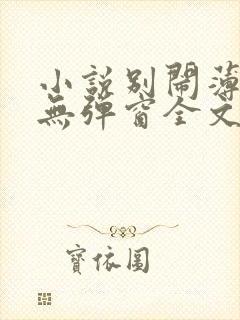 小說別鬧薄
無彈窗全文
寶依圓